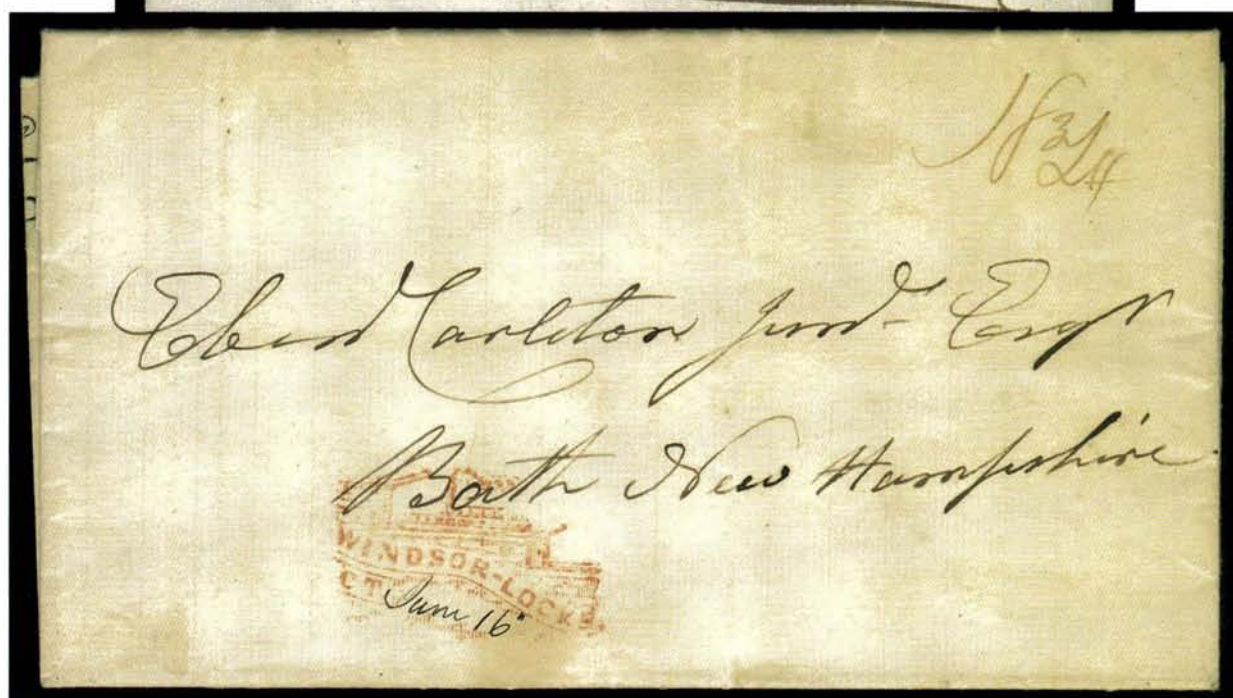 18 3/4
Eben Carleton Junr Esqr
Bath New Hampshire
WINDSOR-LOCKS,
CT
June 16"